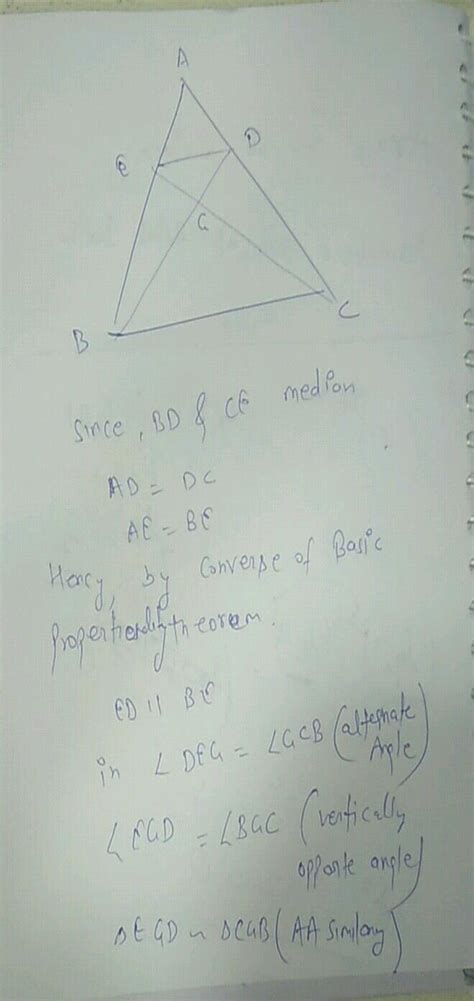 A
E
D
G
B
C
Since, BD & CE median
AD = DC
AE = BE
Hency, by Converse of Basic
Proportionality theorem.
ED || BE
in ∠DEG = ∠GCB (alternate
Angle)
∠EGD = ∠BGC (vertically
opposite angle)
ΔEGD ~ ΔCGB (AA Similary)